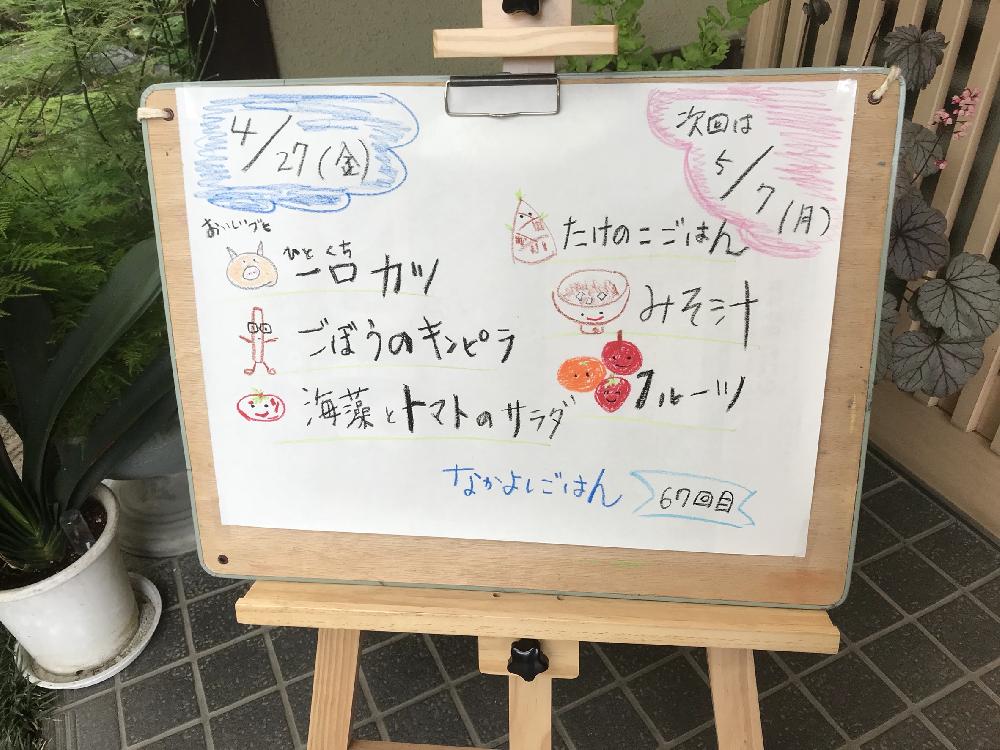 4/27(金)
次回は
5/7(月)
おいしいブヒ
ひとくち
一口カツ
ごぼうのキンピラ
海藻とトマトのサラダ
たけのこごはん
みそ汁
フルーツ
なかよしごはん
67回目